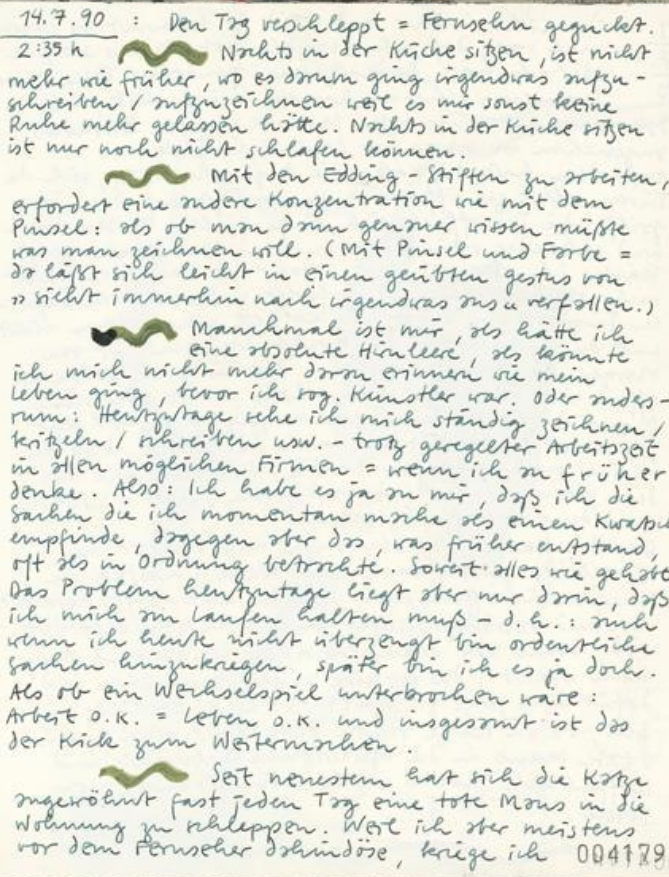 14.7.90 : Den Tag verschleppt = Fernsehn geguckt.
2:35 h Nachts in der Küche sitzen, ist nicht
mehr wie früher, wo es darum ging irgendwas aufzu-
schreiben / aufzuzeichnen weil es mir sonst keine
Ruhe mehr gelassen hätte. Nachts in der Küche sitzen
ist nur noch nicht schlafen können.
Mit den Edding-Stiften zu arbeiten,
erfordert eine andere Konzentration wie mit dem
Pinsel: als ob man dann genauer wissen müßte
was man zeichnen will. (Mit Pinsel und Farbe =
da läßt sich leicht in einen geübten gestus von
"sieht immerhin nach irgendwas aus" verfallen.)
Manchmal ist mir, als hätte ich
eine absolute Hirnleere, als könnte
ich mich nicht mehr daran erinnern wie mein
Leben ging, bevor ich sog. Künstler war. Oder anders-
rum: Heutzutage sehe ich mich ständig zeichnen /
kritzeln / schreiben usw. - trotz geregelter Arbeitszeit
in allen möglichen Firmen = wenn ich an früher
denke. Also: Ich habe es ja an mir, daß ich die
Sachen die ich momentan mache als einen Kwatsch
empfinde, dagegen aber das, was früher entstand,
oft als in Ordnung betrachte. Soweit alles wie gehabt
Das Problem heutzutage liegt aber nur darin, daß
ich mich am Laufen halten muß - d.h.: auch
wenn ich heute nicht überzeugt bin ordentliche
Sachen hinzukriegen, später bin ich es ja doch.
Als ob ein Wechselspiel unterbrochen wäre:
Arbeit o.k. = Leben o.k. und insgesamt ist das
der Kick zum Weitermachen.
Seit neuestem hat sich die Katze
angewöhnt fast jeden Tag eine tote Maus in die
Wohnung zu schleppen. Weil ich aber meistens
vor dem Fernseher dahindöse, kriege ich 004179